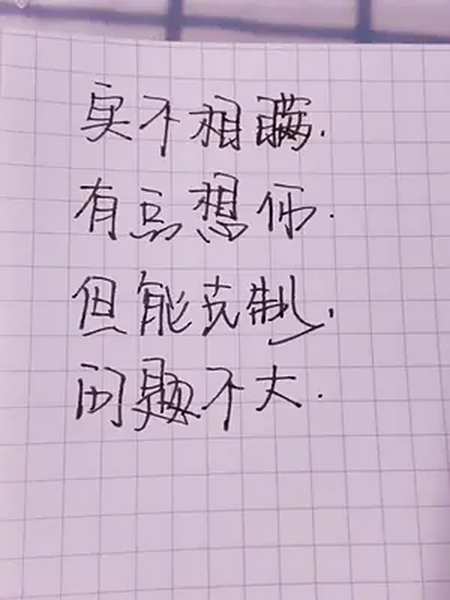 实不相瞒.
有点想你.
但能克制.
问题不大.